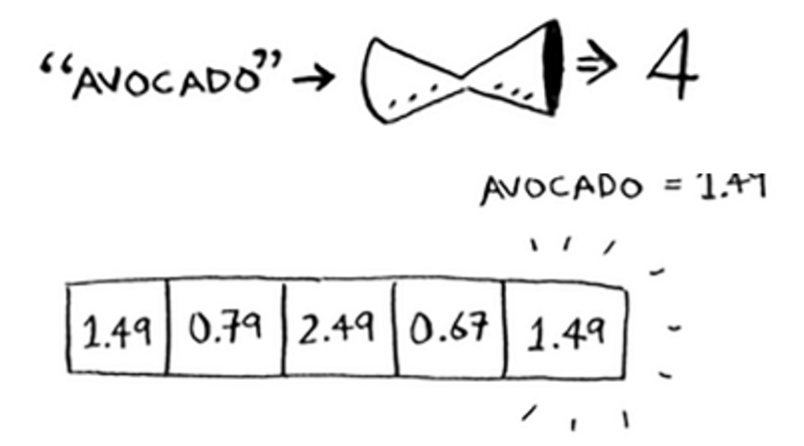 “AVOCADO” → ⇒ 4
AVOCADO = 1.49
1.49 0.79 2.49 0.67 1.49